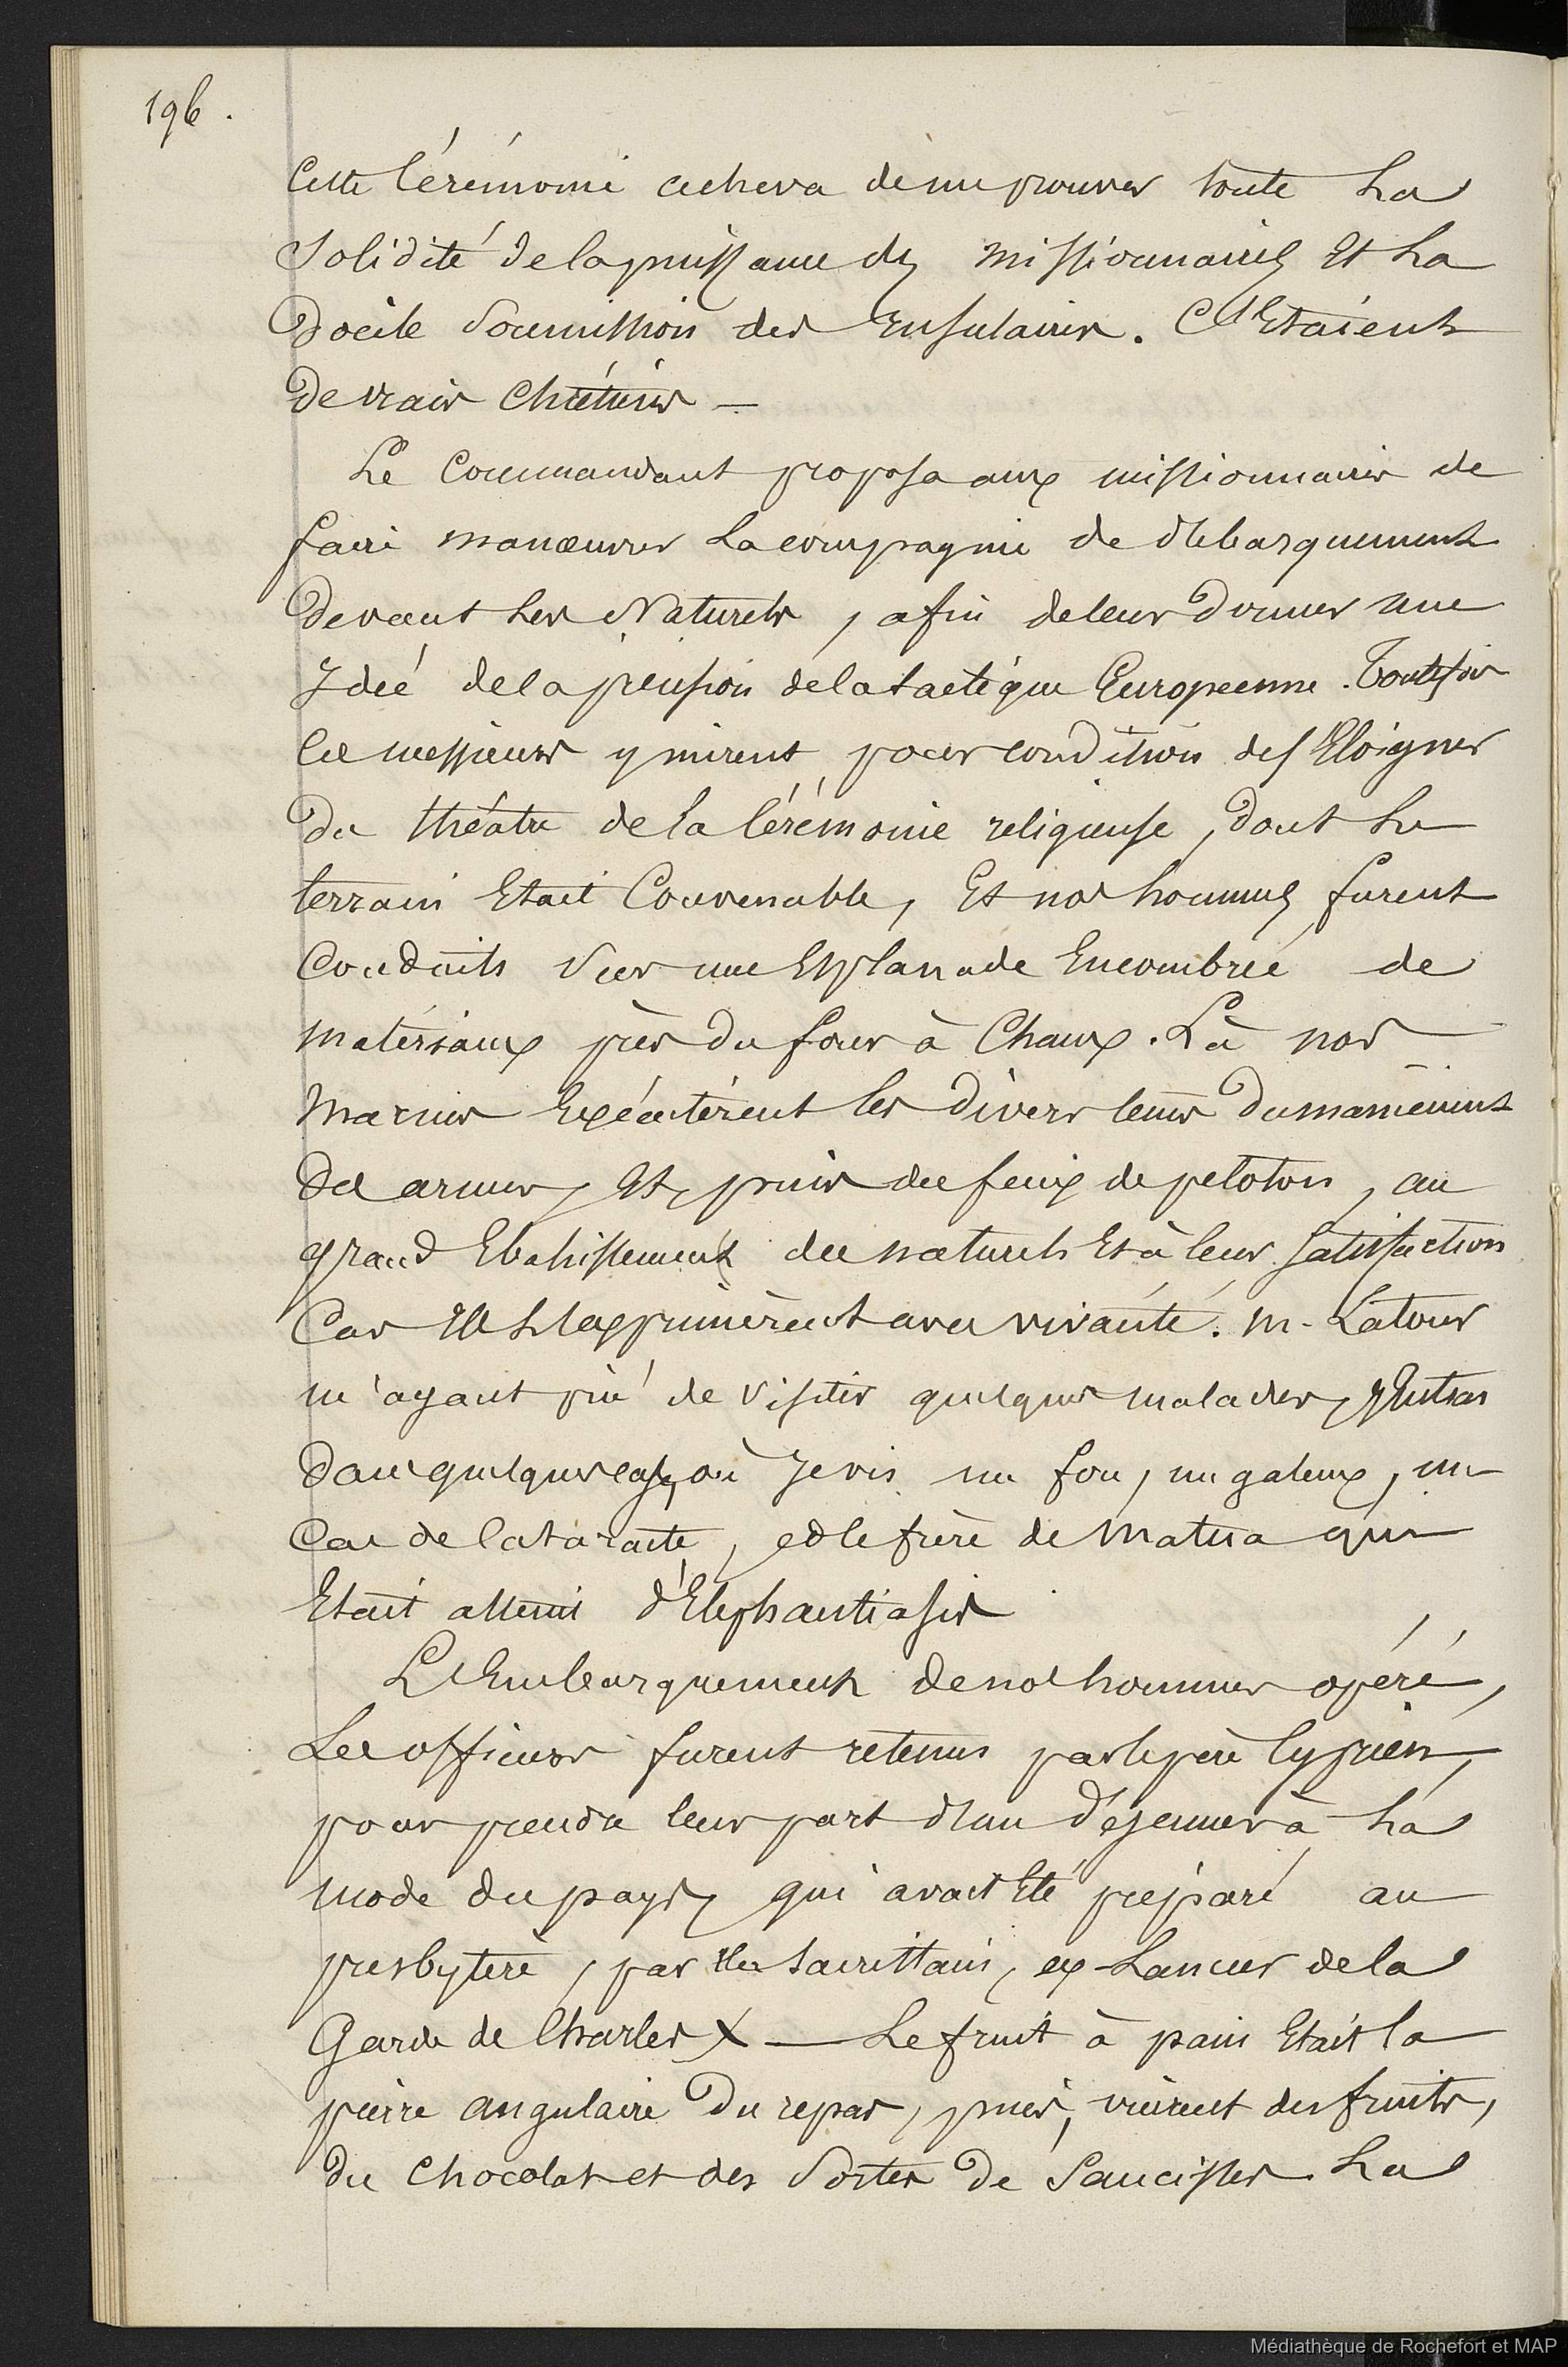 196.
Cette Cérémonie acheva de me prouver toute La
Solidité de la puissance des missionnaires Et La
Docile Soumission des Insulaires. C'Etaient
de vrais Chrétiens —
Le Commandant proposa aux missionnaires de
faire manœuvrer La compagnie de débarquement
devant Les Naturels, afin de leur donner une
Idée de la précision de la tactique Européenne. Toutefois
ces messieurs y mirent pour condition de s'Eloigner
du théâtre de la Cérémonie religieuse, dont Le
terrain Etait Convenable, Et nos hommes furent
Conduits sur une Esplanade Encombrée de
matériaux près du four à Chaux. Là nos
marins Exécutèrent les divers tems du maniement
des armes, Et, puis des feux de peloton, au
grand Ebahissement des naturels Et à leur satisfaction
Car Ils L'exprimèrent avec vivacité. M. Latour
m'ayant prié de visiter quelques malades, J'Entrai
dans quelques cases, où Je vis un fou, un galeux, un
Cas de Cataracte, et le frère de Matua qui
Etait atteint d'Elephantiasis
L'Embarquement de nos hommes opéré,
Les officiers furent retenus par le père Cyprien,
pour prendre leur part d'un déjeuner à La
mode du pays, qui avait Eté préparé au
presbytère, par le Sacristain, ex-Lancier de la
Garde de Charles X — Le fruit à pain Etait la
pierre angulaire du repas, puis, vinrent des fruits,
du Chocolat et des Sortes de Saucisses. La
Médiathèque de Rochefort et MAP